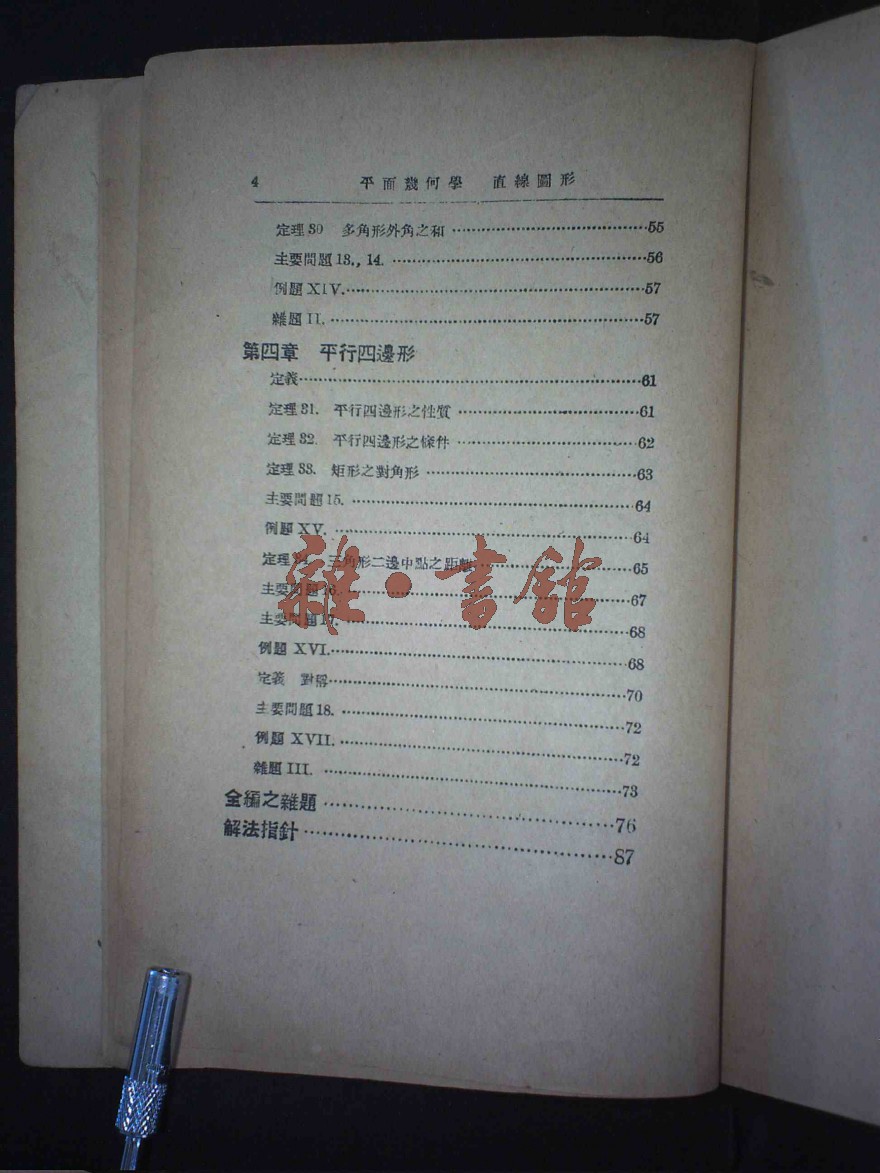 4 平面幾何學 直線圖形
定理30 多角形外角之和 55
主要問題13., 14. 56
例題XIV. 57
雜題II. 57
第四章 平行四邊形
定義 61
定理31. 平行四邊形之性質 61
定理32. 平行四邊形之條件 62
定理33. 矩形之對角形 63
主要問題15. 64
例題XV. 64
定理34. 三角形二邊中點之距離 65
主要問題16. 67
主要問題17. 68
例題XVI. 68
定義 對稱 70
主要問題18. 72
例題XVII. 72
雜題III. 73
全編之雜題 76
解法指針 87
雜·書館